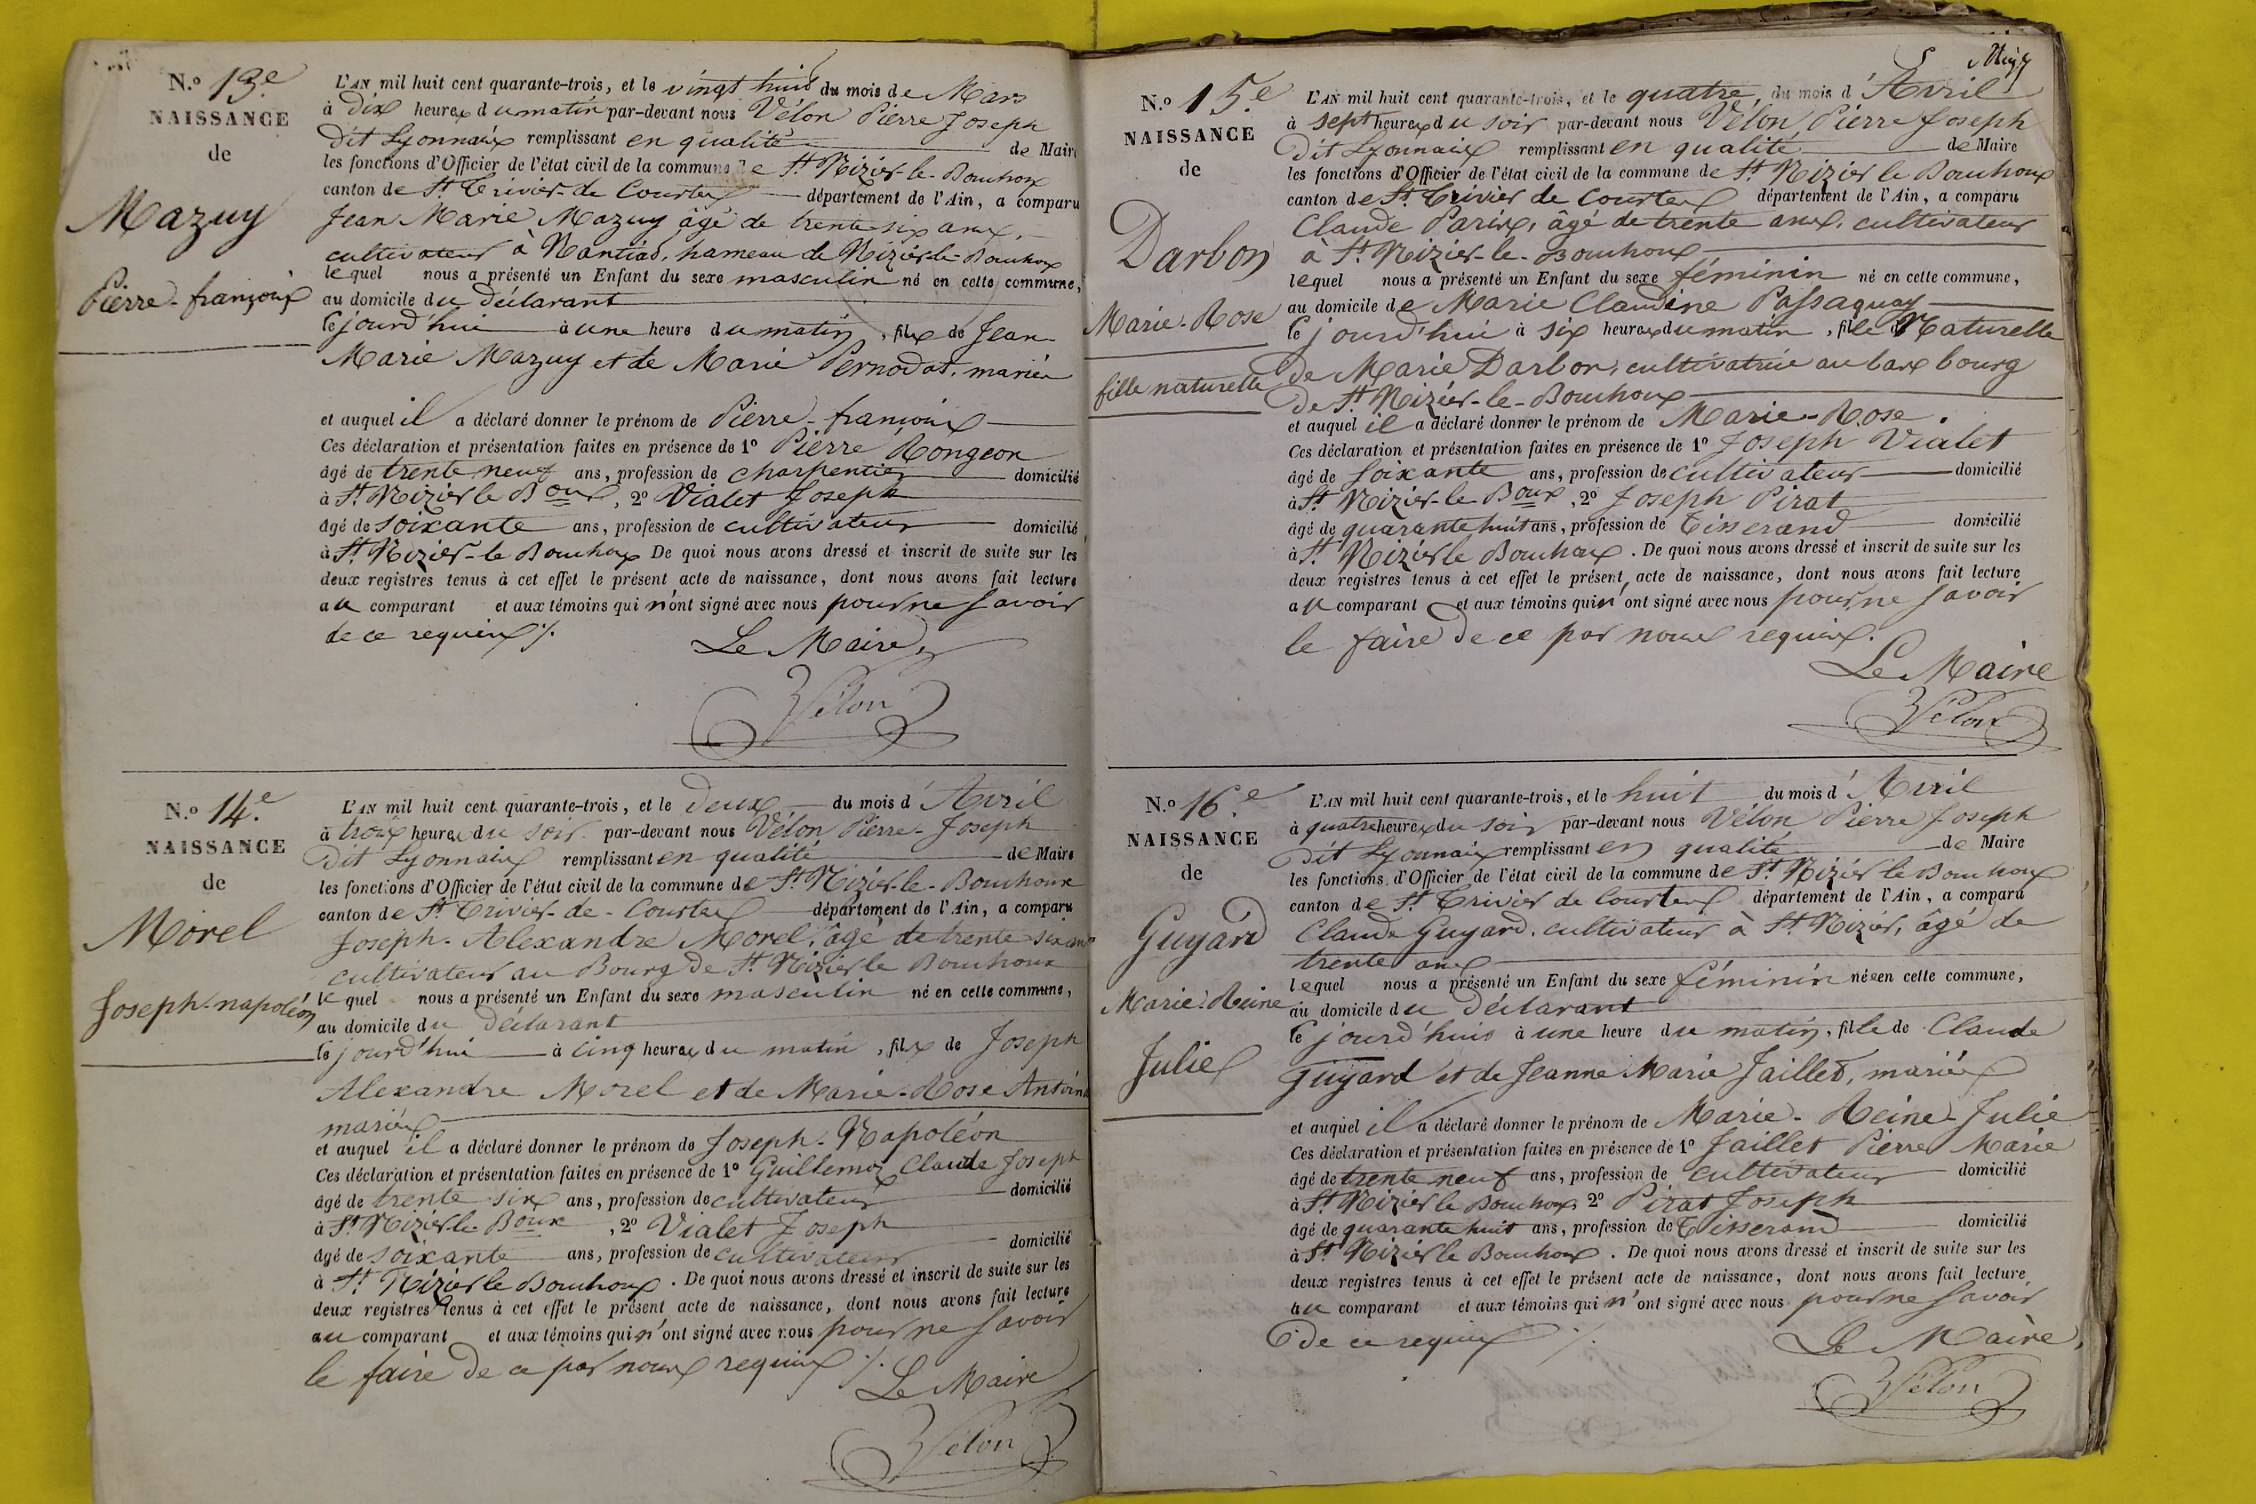 N.º 13.e
NAISSANCE
de
Mazuy
Pierre-françois
L'AN mil huit cent quarante-trois, et le vingt huit du mois de Mars
à dix heures du matin par-devant nous Vélon Pierre Joseph
dit Lyonnais remplissant en qualité de Maire
les fonctions d'Officier de l'état civil de la commune de St Nizier-le-Bouchoux
canton de St Trivier-de Courtes département de l'Ain, a comparu
Jean Marie Mazuy âgé de trente six ans,
cultivateur à Nantias, hameau de Nizier-le-Bouchoux
lequel nous a présenté un Enfant du sexe masculin né en cette commune,
au domicile du déclarant
le jourd'hui à une heure du matin, fils de Jean
Marie Mazuy et de Marie Pernodat, mariés
et auquel il a déclaré donner le prénom de Pierre-françois
Ces déclaration et présentation faites en présence de 1º Pierre Rongeon
âgé de trente neuf ans, profession de charpentier domicilié
à St Nizier le Boux, 2º Vialet Joseph
âgé de soixante ans, profession de cultivateur domicilié
à St Nizier-le Bouchoux De quoi nous avons dressé et inscrit de suite sur les
deux registres tenus à cet effet le présent acte de naissance, dont nous avons fait lecture
au comparant et aux témoins qui n'ont signé avec nous pour ne savoir
de ce requis ./.
Le Maire,
Vélon
N.º 14.e
NAISSANCE
de
Morel
Joseph-napoléon
L'AN mil huit cent quarante-trois, et le deux du mois d'Avril
à trois heures du soir par-devant nous Vélon Pierre-Joseph
dit Lyonnais remplissant en qualité de Maire
les fonctions d'Officier de l'état civil de la commune de St Nizier-le-Bouchoux
canton de St Trivier-de-Courtes département de l'Ain, a comparu
Joseph-Alexandre Morel, âgé de trente six ans
cultivateur au Bourg de St Nizier le Bouchoux
lequel nous a présenté un Enfant du sexe masculin né en cette commune,
au domicile du déclarant
le jourd'hui à cinq heures du matin, fils de Joseph
Alexandre Morel et de Marie-Rose
mariés
et auquel il a déclaré donner le prénom de Joseph-Napoléon
Ces déclaration et présentation faites en présence de 1º Guillemoz Claude Joseph
âgé de trente six ans, profession de cultivateur domicilié
à St Nizier-le Boux, 2º Vialet Joseph
âgé de soixante ans, profession de cultivateur domicilié
à St Nizier le Bouchoux. De quoi nous avons dressé et inscrit de suite sur les
deux registres tenus à cet effet le présent acte de naissance, dont nous avons fait lecture
au comparant et aux témoins qui n'ont signé avec nous pour ne savoir
le faire de ce par nous requis ./.
Le Maire
Vélon
5
N.º 15.e
NAISSANCE
de
Darbon
Marie-Rose
fille naturelle
L'AN mil huit cent quarante-trois, et le quatre, du mois d'Avril
à sept heures du soir par-devant nous Vélon Pierre Joseph
dit Lyonnais remplissant en qualité de Maire
les fonctions d'Officier de l'état civil de la commune de St Nizier le Bouchoux
canton de St Trivier de Courtes département de l'Ain, a comparu
Claude Paris, âgé de trente ans, cultivateur
à St Nizier-le-Bouchoux
lequel nous a présenté un Enfant du sexe féminin né en cette commune,
au domicile de Marie Claudine Passaquay
le jourd'hui à six heures du matin, fille Naturelle
de Marie Darbon, cultivatrice au bas bourg
de St Nizier-le-Bouchoux
et auquel il a déclaré donner le prénom de Marie-Rose.
Ces déclaration et présentation faites en présence de 1º Joseph Vialet
âgé de soixante ans, profession de cultivateur domicilié
à St Nizier-le-Boux, 2º Joseph Pirat
âgé de quarante huit ans, profession de Tisserand domicilié
à St Nizier le Bouchoux. De quoi nous avons dressé et inscrit de suite sur les
deux registres tenus à cet effet le présent acte de naissance, dont nous avons fait lecture
au comparant et aux témoins qui n'ont signé avec nous pour ne savoir
le faire de ce par nous requis.
Le Maire
Vélon
N.º 16.e
NAISSANCE
de
Guyard
Marie-Reine
Julie
L'AN mil huit cent quarante-trois, et le huit du mois d'Avril
à quatre heures du soir par-devant nous Vélon Pierre Joseph
dit Lyonnais remplissant en qualité de Maire
les fonctions d'Officier de l'état civil de la commune de St Nizier le Bouchoux
canton de St Trivier de Courtes département de l'Ain, a comparu
Claude Guyard, cultivateur à St Nizier, âgé de
trente ans
lequel nous a présenté un Enfant du sexe féminin née en cette commune,
au domicile du déclarant
le jourd'huis à une heure du matin, fille de Claude
Guyard et de Jeanne Marie Jaillet, mariés
et auquel il a déclaré donner le prénom de Marie-Reine-Julie
Ces déclaration et présentation faites en présence de 1º Jaillet Pierre Marie
âgé de trente neuf ans, profession de cultivateur domicilié
à St Nizier le Bouchoux, 2º Pirat Joseph
âgé de quarante huit ans, profession de Tisserand domicilié
à St Nizier le Bouchoux. De quoi nous avons dressé et inscrit de suite sur les
deux registres tenus à cet effet le présent acte de naissance, dont nous avons fait lecture
au comparant et aux témoins qui n'ont signé avec nous pour ne savoir
de ce requis ./.
Le Maire,
Vélon